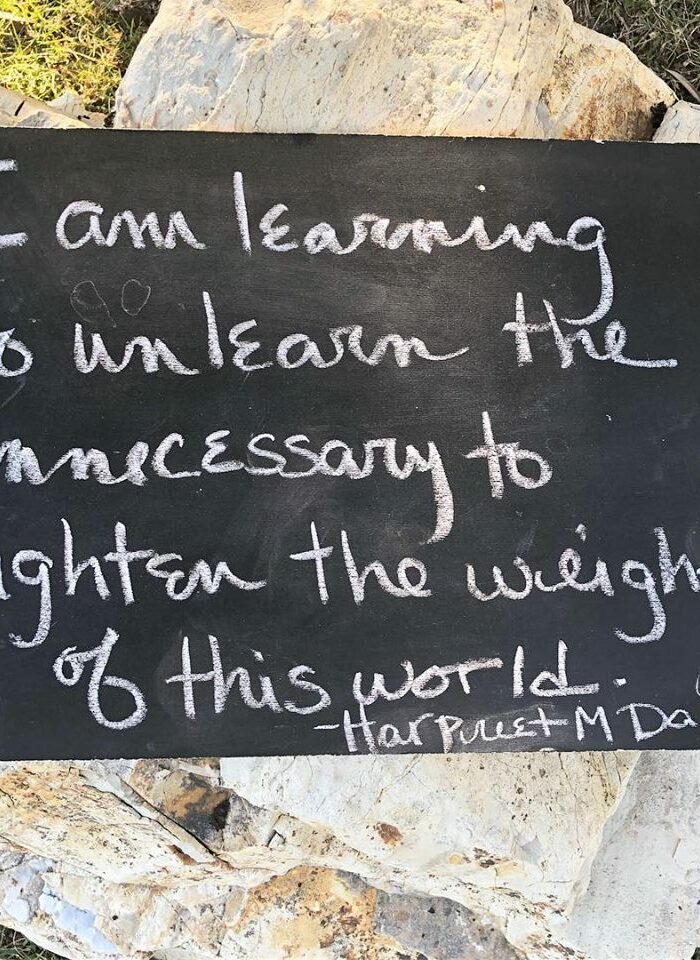 I am learning
to unlearn the
unnecessary to
lighten the weight
of this world.
-Harpreet M Da